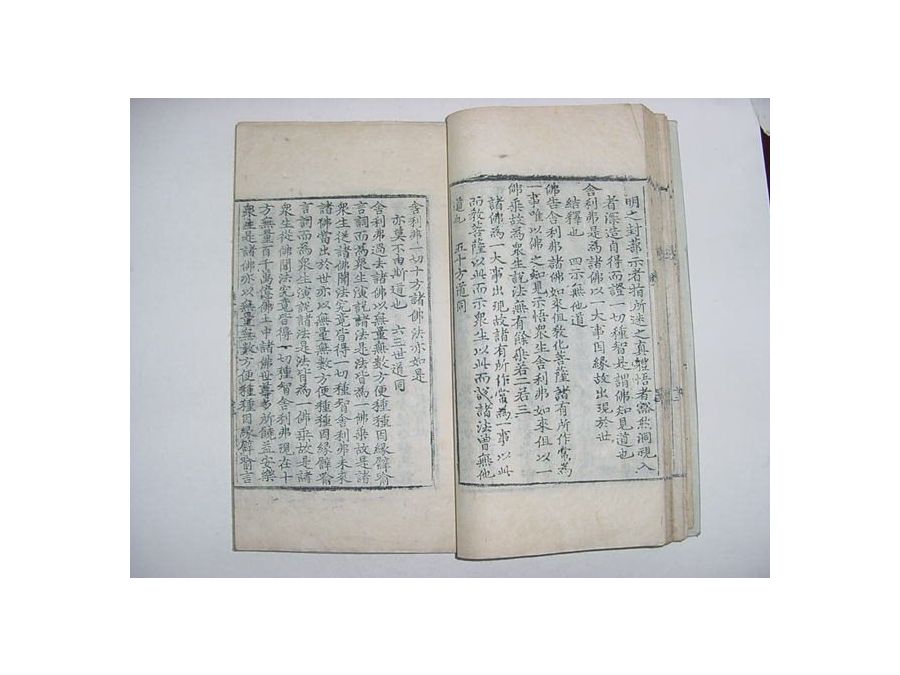 明之封蔀示者指所迷之真體悟者豁然洞視入
者深造自得而證一切種智是謂佛知見道也
舍利弗是為諸佛以一大事因緣故出現於世
結釋也 四示無他道
佛告舍利弗諸佛如來但教化菩薩諸有所作常為
一事唯以佛之知見示悟眾生舍利弗如來但以一
佛乘故為眾生說法無有餘乘若二若三
諸佛為一大事出現故諸有所作常為一事以此
而教菩薩以此而示眾生以此而說諸法曾無他
道也 五十方道同
舍利弗一切十方諸佛法亦如是
亦莫不由斯道也 六三世道同
舍利弗過去諸佛以無量無數方便種種因緣譬喻
言詞而為眾生演說諸法是法皆為一佛乘故是諸
眾生從諸佛聞法究竟皆得一切種智舍利弗未來
諸佛當出於世亦以無量無數方便種種因緣譬喻
言詞而為眾生演說諸法是法皆為一佛乘故是諸
眾生從佛聞法究竟皆得一切種智舍利弗現在十
方無量百千萬億佛土中諸佛世尊多所饒益安樂
眾生是諸佛亦以無量無數方便種種因緣譬喻言